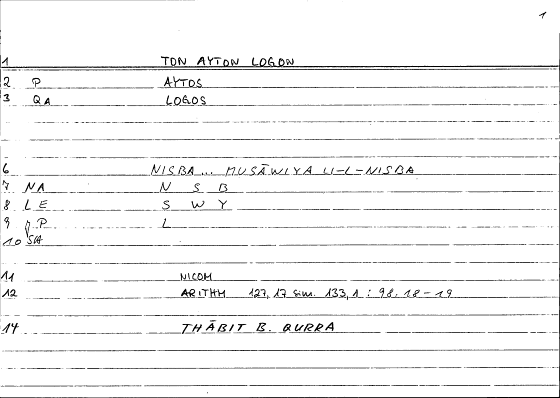 1
1 TON AYTON LOGON
2 P AYTOS
3 QA LOGOS
6 NISBA... MUSĀWIYA LI-L-NISBA
7 NA N S B
8 LE S W Y
9 P L
10 SA
11 NICOM
12 ARITHM 127,17 sim. 133,1 : 98,18-19
14 THĀBIT B. QURRA